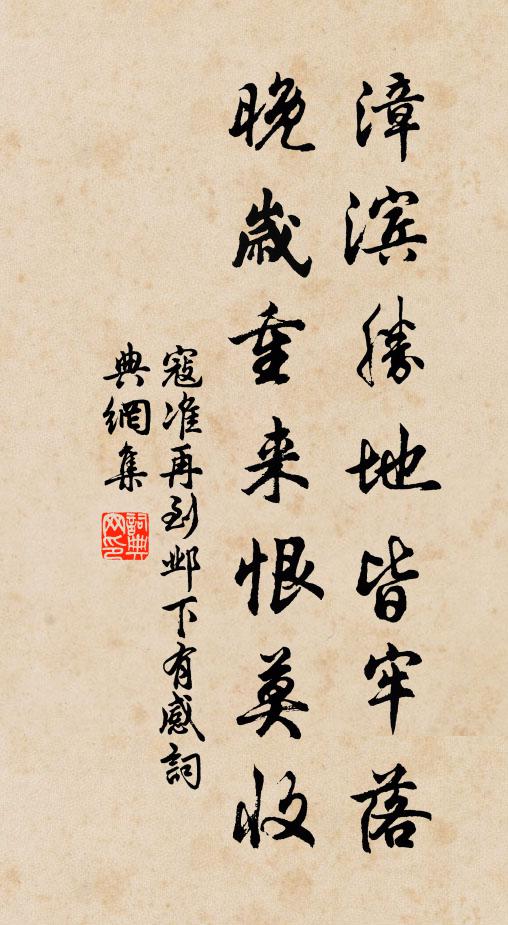 漳滨勝地皆牢落
晚歲重来恨莫收
寇准再到邺下有感詞
典網集
詞典
网印